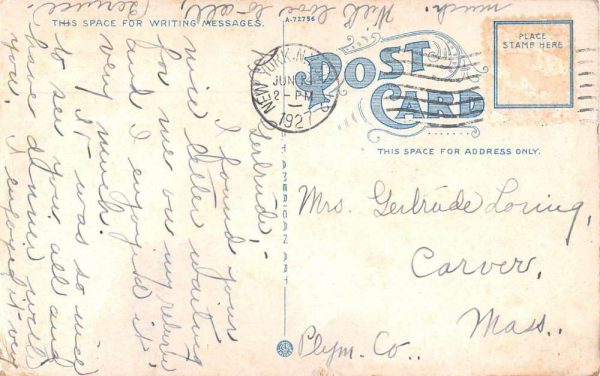 THIS SPACE FOR WRITING MESSAGES.
A-72756
POST
CARD
PLACE
STAMP HERE
NEW YORK, N.Y.
JUN
2-PM
1927
THIS SPACE FOR ADDRESS ONLY.
AMERICAN ART
Mrs. Gertrude Loring,
Carver,
Mass.
Plym. Co.,
Gertrude,
I found your
nice letter waiting
for me on my return
and I enjoyed it
very much.
It was so nice
to see you all and
have dinner with
you. I enjoyed it very
much. With love to all,